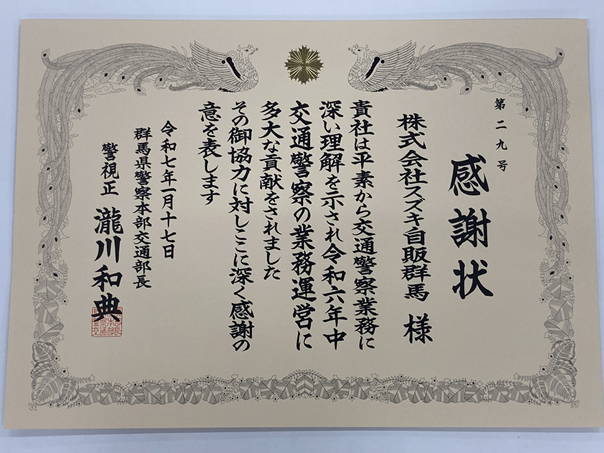 第二九号
感謝状
株式会社スズキ自販群馬 様
貴社は平素から交通警察業務に
深い理解を示され令和六年中
交通警察の業務運営に
多大な貢献をされました
その御協力に対しここに深く感謝の
意を表します
令和七年一月十七日
群馬県警察本部交通部長
警視正 瀧川和典